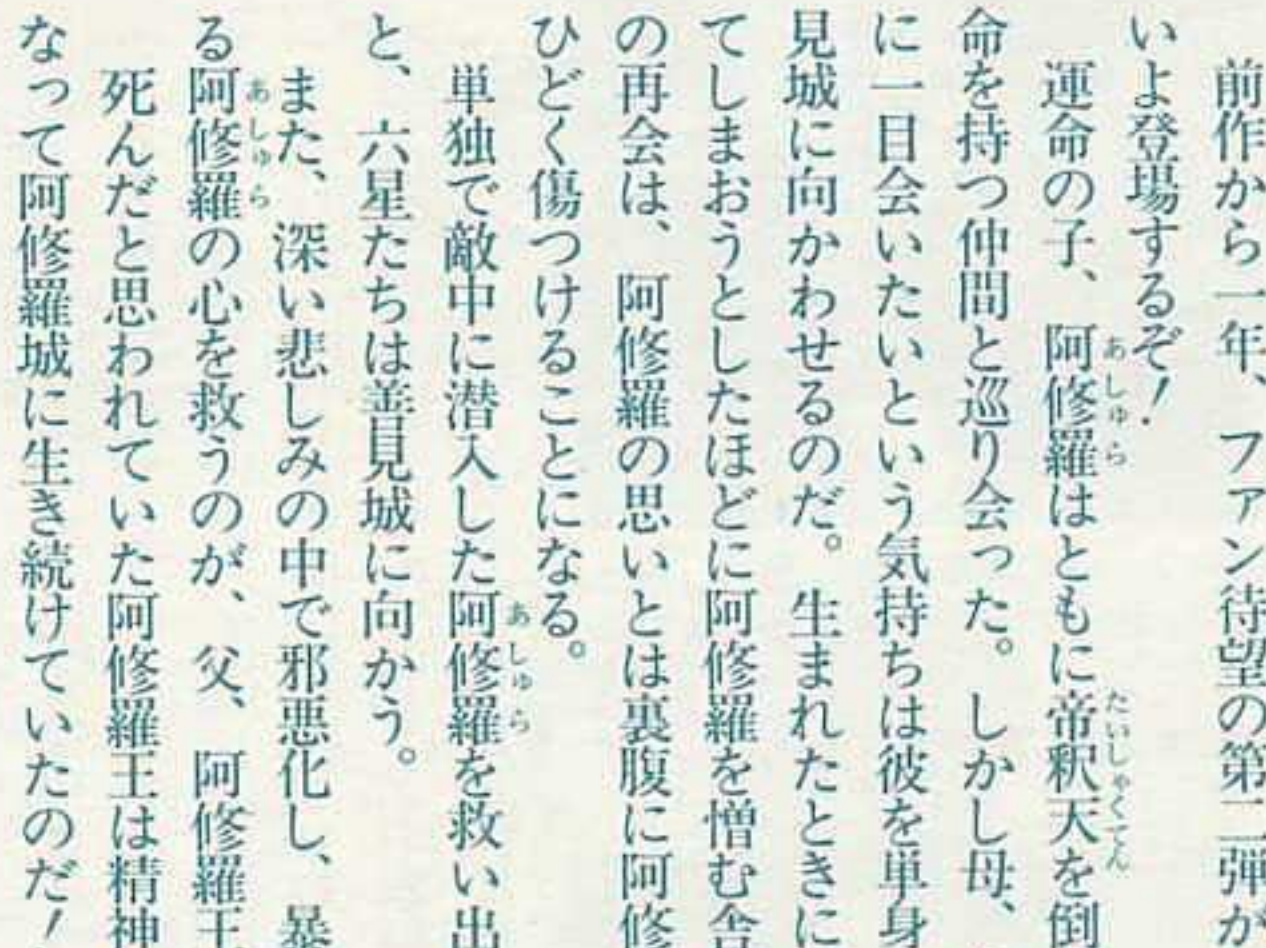 前作から一年、ファン待望の第二弾が
いよ登場するぞ！
運命の子、阿修羅はともに帝釈天を倒
命を持つ仲間と巡り会った。しかし母、
に一日会いたいという気持ちは彼を単身
見城に向かわせるのだ。生まれたときに
てしまおうとしたほどに阿修羅を憎む舎
の再会は、阿修羅の思いとは裏腹に阿修
ひどく傷つけることになる。
単独で敵中に潜入した阿修羅を救い出
と、六星たちは善見城に向かう。
また、深い悲しみの中で邪悪化し、暴
る阿修羅の心を救うのが、父、阿修羅王
死んだと思われていた阿修羅王は精神
なって阿修羅城に生き続けていたのだ！